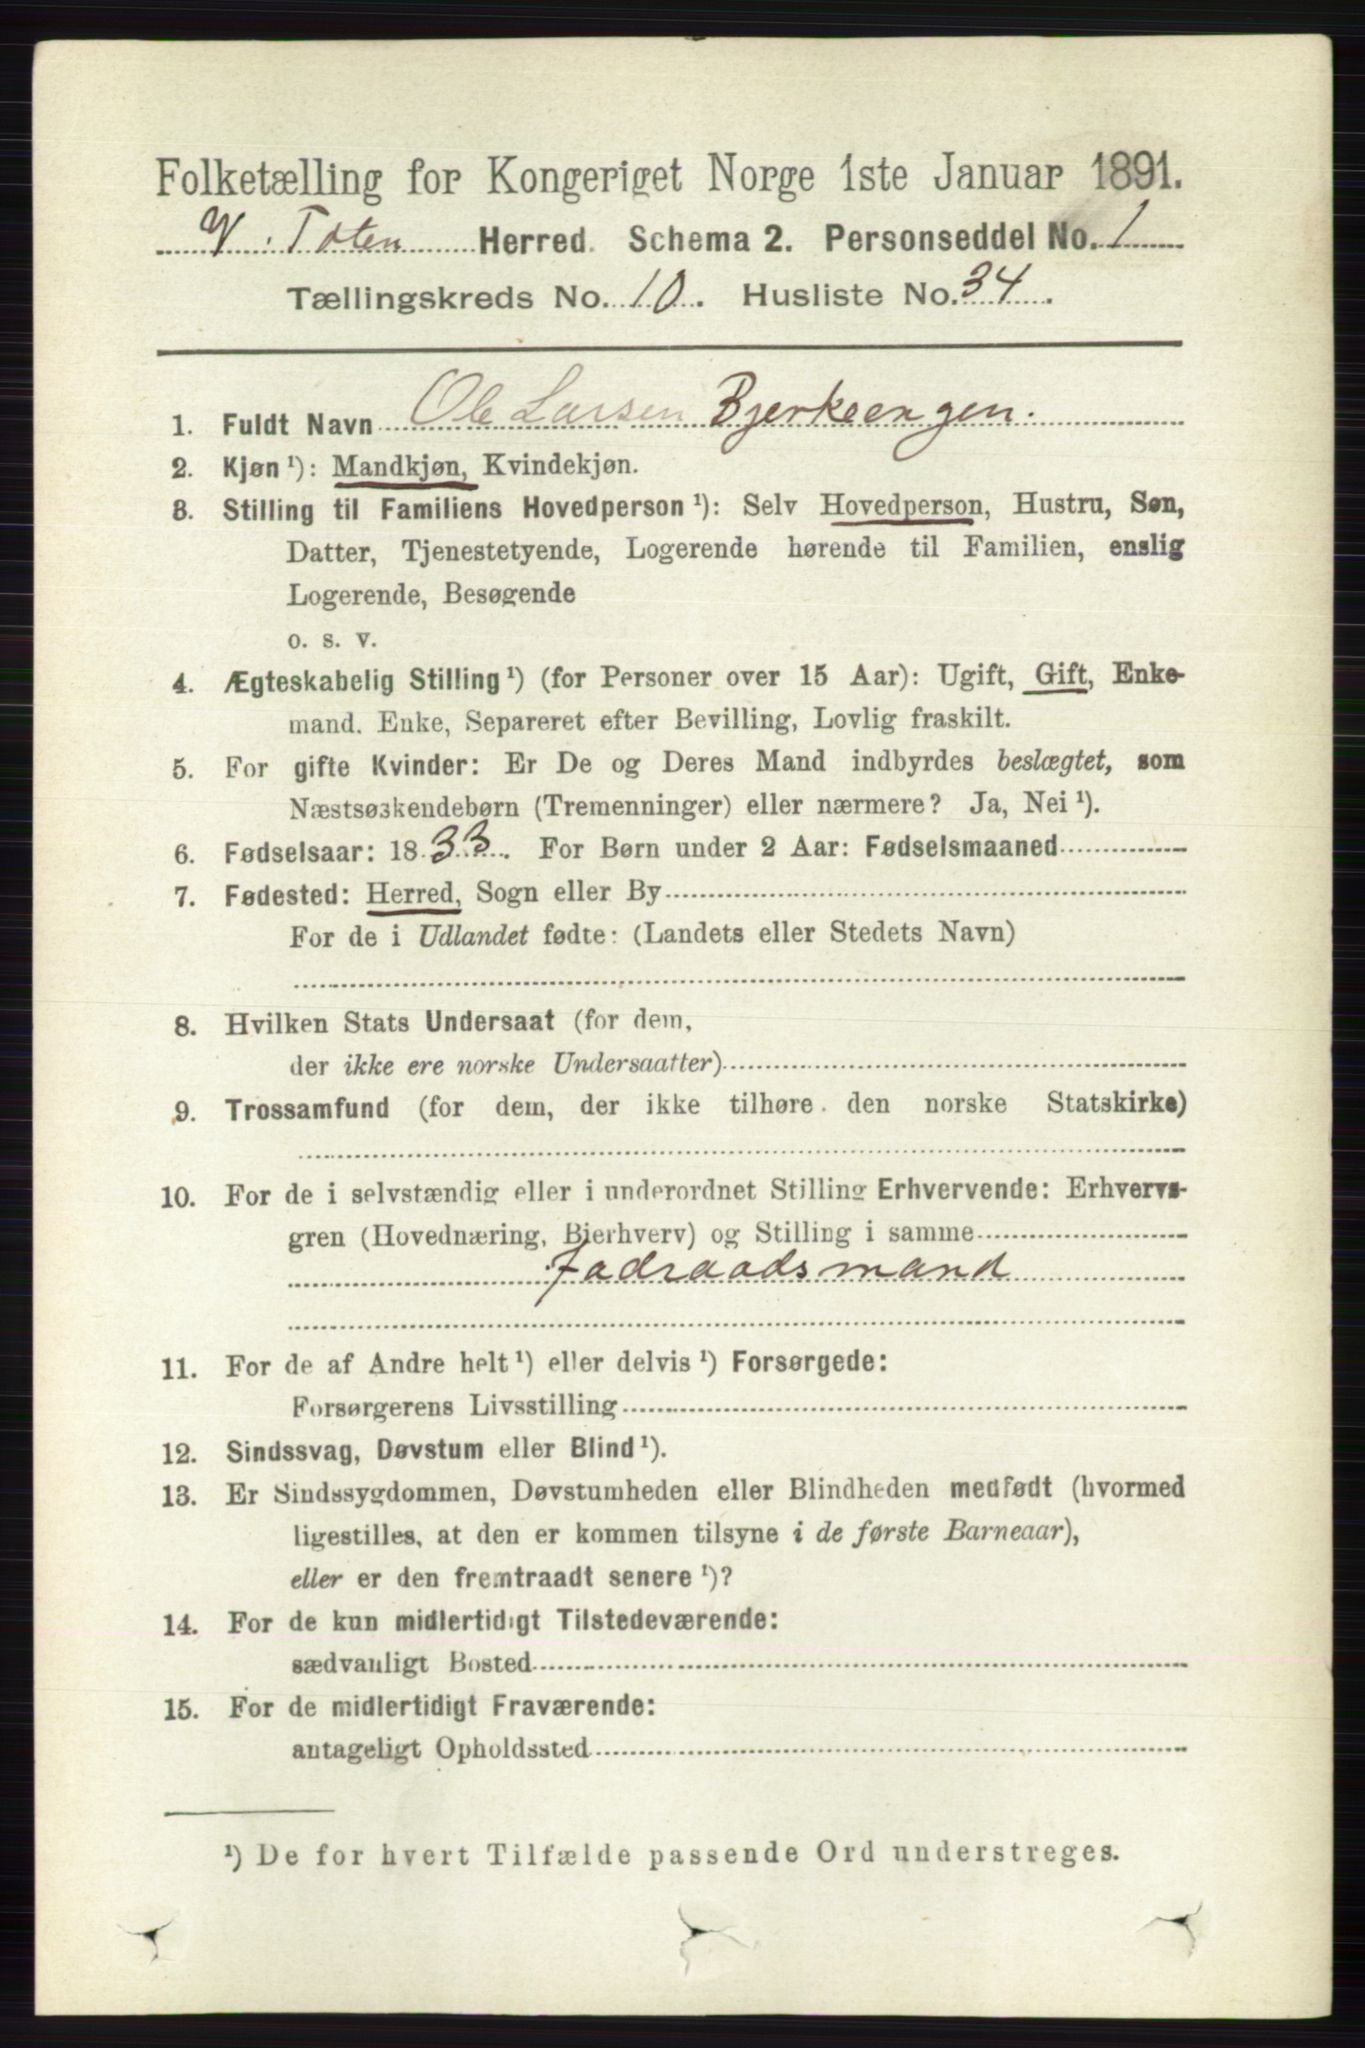 Folketælling for Kongeriget Norge 1ste Januar 1891.
V. Toten Herred. Schema 2. Personseddel No. 1
Tællingskreds No. 10. Husliste No. 34.
1. Fuldt Navn Ole Larsen Bjerkeengen.
2. Kjøn ¹): Mandkjøn, Kvindekjøn.
3. Stilling til Familiens Hovedperson ¹): Selv Hovedperson, Hustru, Søn,
Datter, Tjenestetyende, Logerende hørende til Familien, enslig
Logerende, Besøgende
o. s. v.
4. Ægteskabelig Stilling ¹) (for Personer over 15 Aar): Ugift, Gift, Enke-
mand. Enke, Separeret efter Bevilling, Lovlig fraskilt.
5. For gifte Kvinder: Er De og Deres Mand indbyrdes beslægtet, som
Næstsøskendebørn (Tremenninger) eller nærmere? Ja, Nei ¹).
6. Fødselsaar: 1833. For Børn under 2 Aar: Fødselsmaaned
7. Fødested: Herred, Sogn eller By
For de i Udlandet fødte: (Landets eller Stedets Navn)
8. Hvilken Stats Undersaat (for dem,
der ikke ere norske Undersaatter)
9. Trossamfund (for dem, der ikke tilhøre den norske Statskirke)
10. For de i selvstændig eller i underordnet Stilling Erhvervende: Erhvervs-
gren (Hovednæring, Bierhverv) og Stilling i samme
Fodraadsmand
11. For de af Andre helt ¹) eller delvis ¹) Forsørgede:
Forsørgerens Livsstilling
12. Sindssvag, Døvstum eller Blind ¹).
13. Er Sindssygdommen, Døvstumheden eller Blindheden medfødt (hvormed
ligestilles, at den er kommen tilsyne i de første Barneaar),
eller er den fremtraadt senere ¹)?
14. For de kun midlertidigt Tilstedeværende:
sædvanligt Bosted
15. For de midlertidigt Fraværende:
antageligt Opholdssted
¹) De for hvert Tilfælde passende Ord understreges.